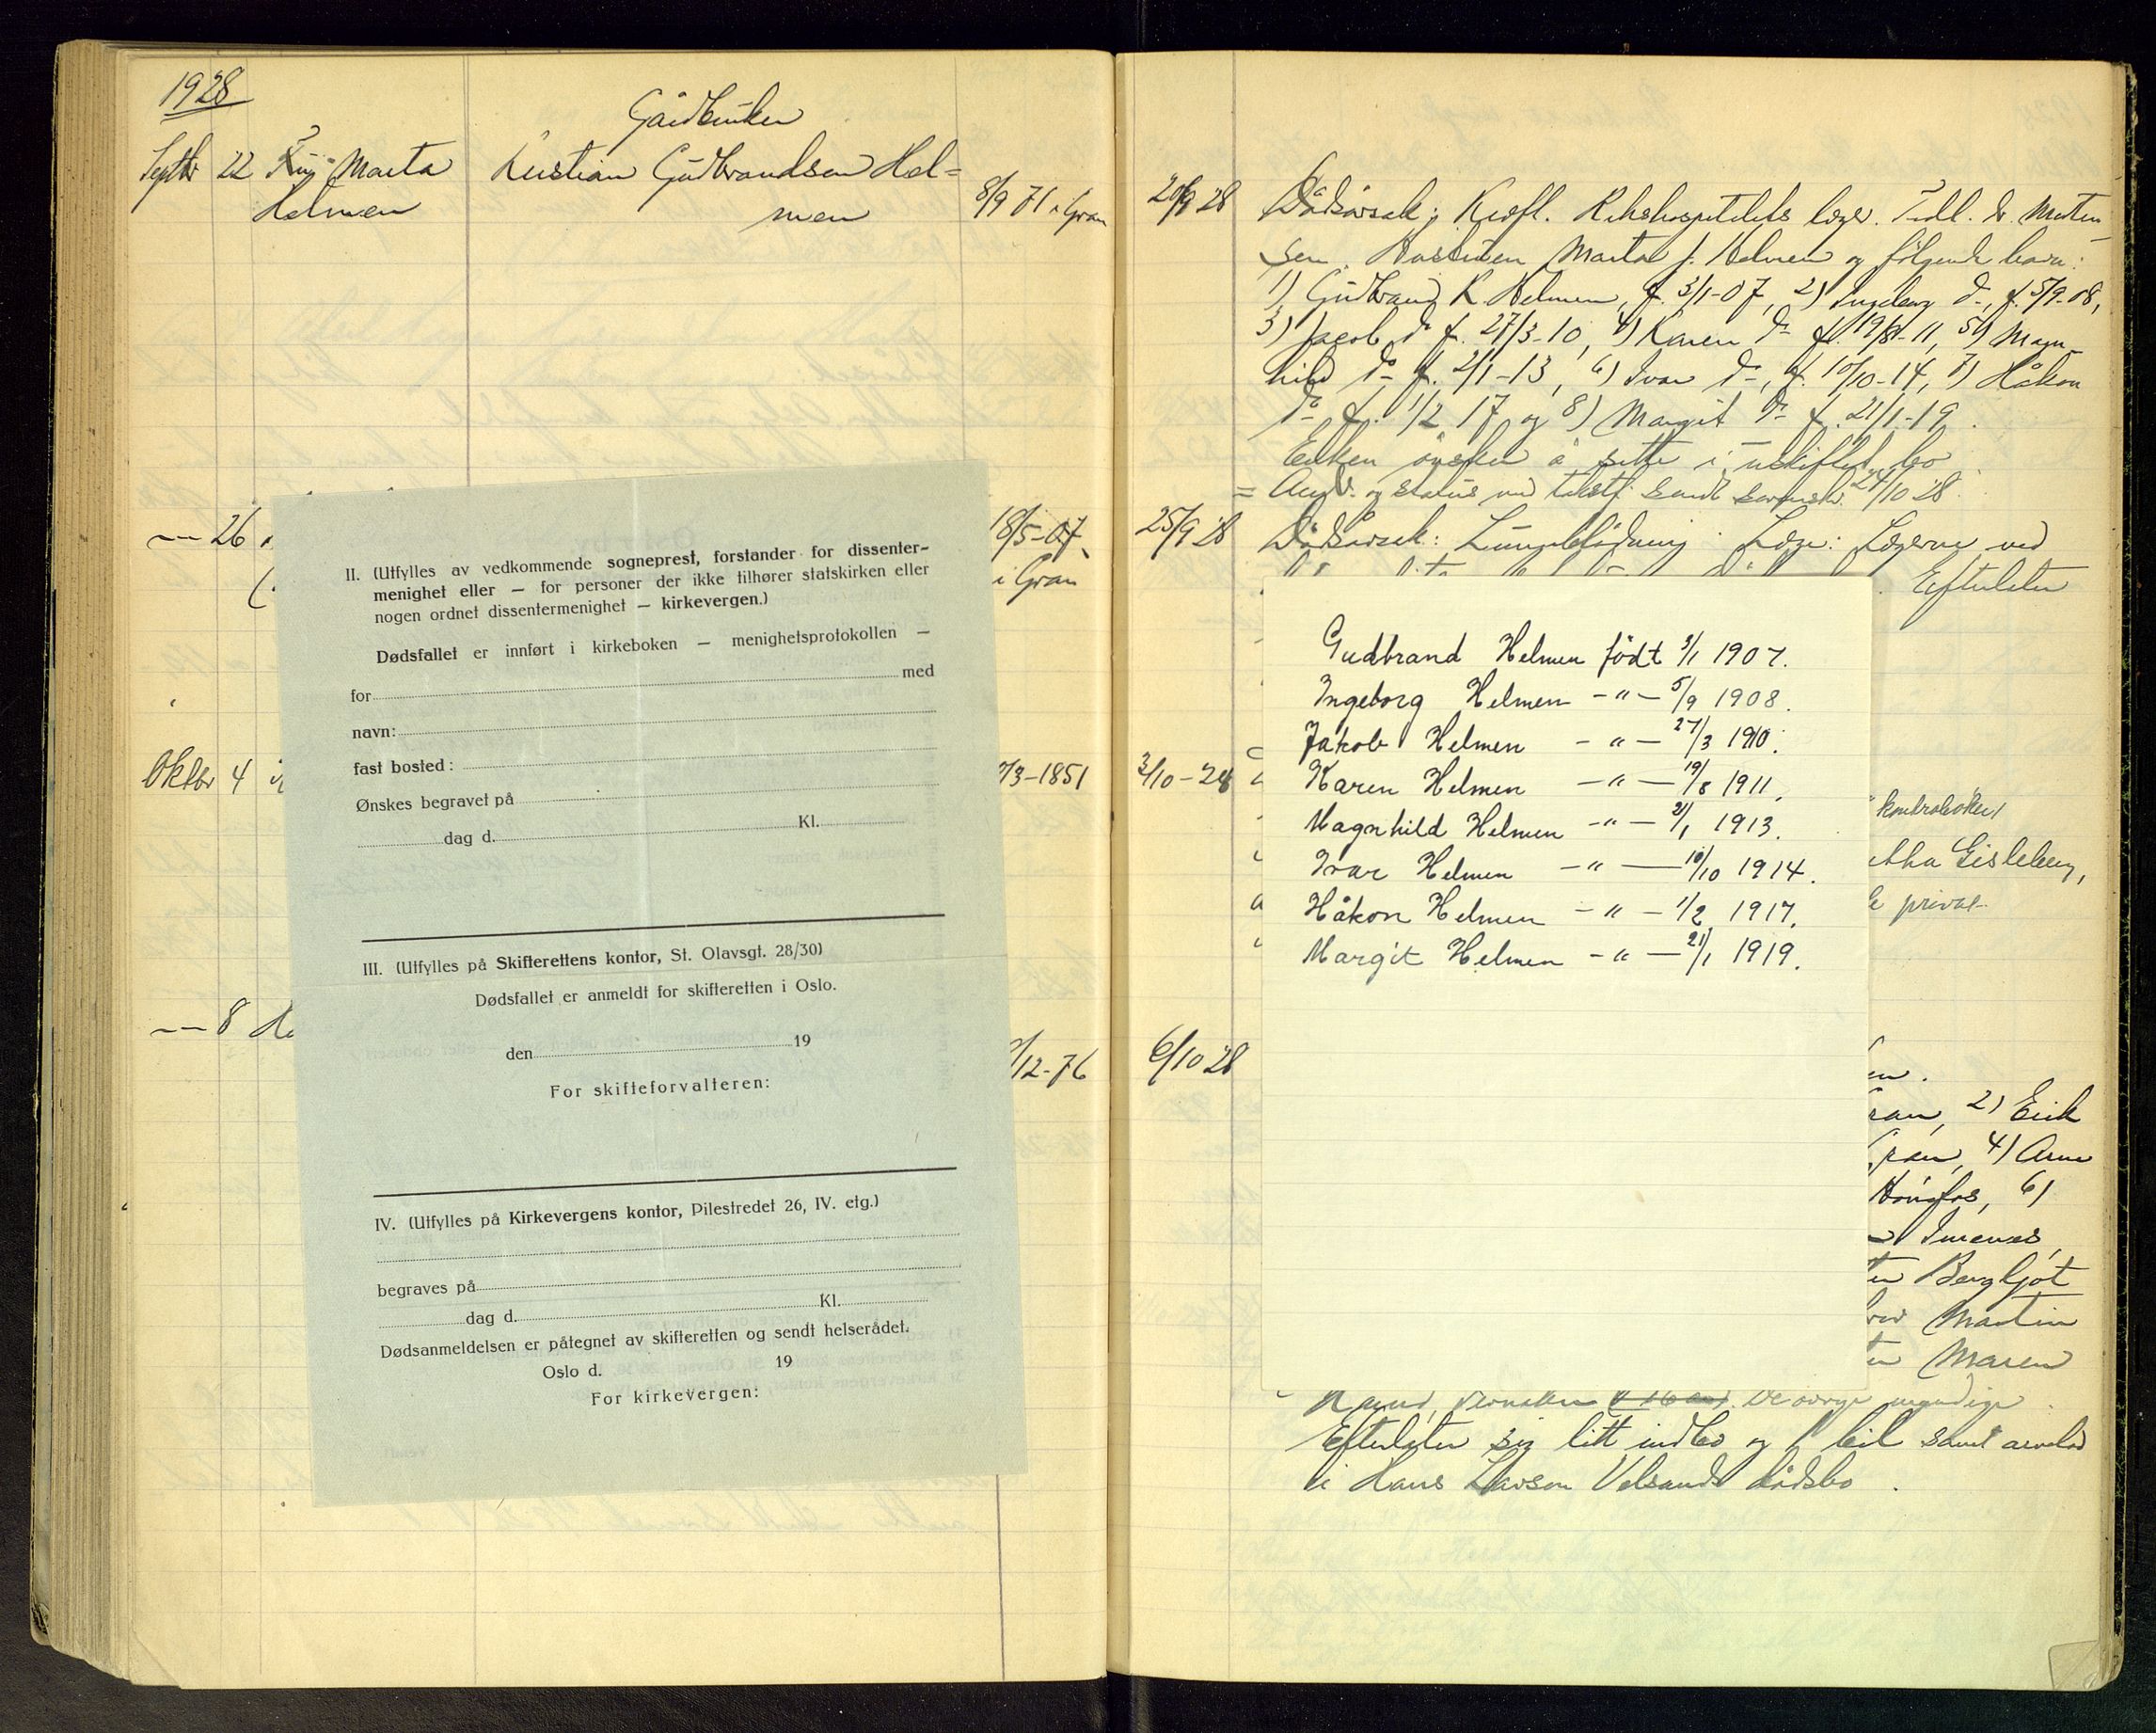 1928
Septbr 22 Marta
Helmen
Gårdbruker
Kristian Gudbrandsen Hel=
men
8/9 71 i Gran
20/9 28
Dødsårsak: Rikshospitalets læger. Tidl. dr. Morten-
sen. Hustruen Marta J. Helmen og følgende barn:
1) Gudbrand K. Helmen, f. 3/1-07, 2) Ingeborg do, f. 5/9-08,
3) Jacob do f. 27/3-10, 4) Karen do f. 19/8-11, 5) Magn-
hild do f. 2/1-13, 6) Ivar do, f. 10/10-14, 7) Håkon
do f. 1/2 17 og 8) Margit do f. 21/1-19.
Enken ønsker å sitte i uskiftet bo
= og status sendt sorenskr. 24/10 28.
— 26
18/5-07
i Gran
25/9 28
Dødsårsak: Lungeblødning. Læge: Lægerne ved
Efterlater
II. (Utfylles av vedkommende sogneprest, forstander for dissenter-
menighet eller — for personer der ikke tilhører statskirken eller
nogen ordnet dissentermenighet — kirkevergen.)
Dødsfallet er innført i kirkeboken — menighetsprotokollen —
for med
navn:
fast bosted:
Ønskes begravet på
dag d. Kl.
III. (Utfylles på Skifterettens kontor, St. Olavsgt. 28/30)
Dødsfallet er anmeldt for skifteretten i Oslo.
den 19
For skifteforvalteren:
IV. (Utfylles på Kirkevergens kontor, Pilestredet 26, IV. etg.)
begraves på
dag d. Kl.
Dødsanmeldelsen er påtegnet av skifteretten og sendt helserådet.
Oslo d. 19
For kirkevergen:
Gudbrand Helmen født 3/1 1907.
Ingeborg Helmen -"- 5/9 1908.
Jakob Helmen -"- 27/3 1910.
Karen Helmen -"- 19/8 1911.
Magnhild Helmen -"- 2/1 1913.
Ivar Helmen -"- 10/10 1914.
Håkon Helmen -"- 1/2 1917.
Margit Helmen -"- 21/1 1919.
Oktbr 4
/3-1851
3/10-28
kontrabøker)
Gisleberg,
privat
— 8
/12-76
6/10 28
en.
ran, 2) Erik
Gran, 4) Arne
Hønefos, 6)
Bergljot
Martin
Maren
De øvrige myndige.
Efterlater sig litt indbo og 1 bil samt arvelod
i Hans Larsen Velsands dødsbo.